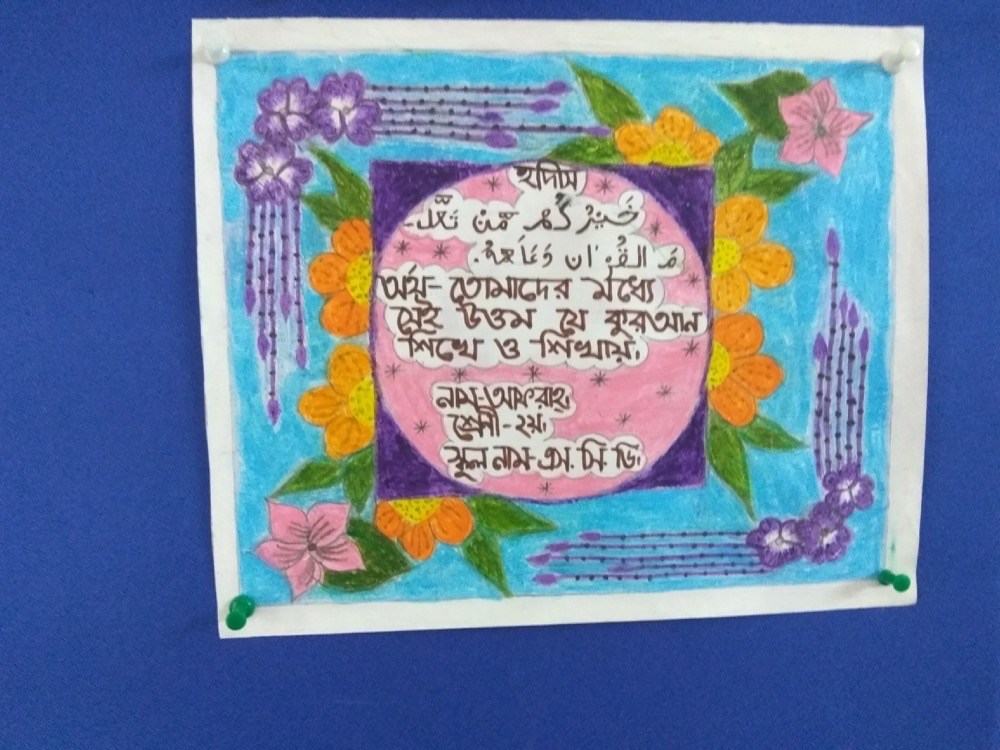 হাদিস
خَيْرُ كُمْ مَّنْ تَعَلَّ-
مَ الْقُرْاٰنَ وَعَلَّمَهٗ.
অর্থ- তোমাদের মধ্যে
সেই উত্তম যে কুরআন
শিখে ও শিখায়।
নাম- আফরাহ্।
শ্রেণী- ২য়।
স্কুল নাম- এস. সি. ডি।